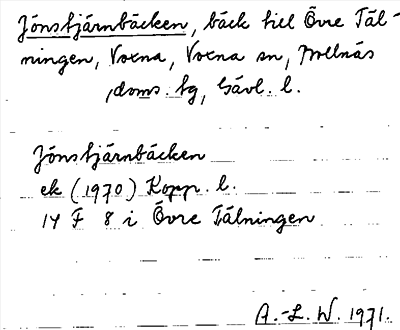 Jönstjärnbäcken, bäck till Övre Täl-
ningen, Voxna, Voxna sn, Bollnäs
doms. tg, Gävl. l.
Jönstjärnbäcken
ek (1970) Kopp. l.
14 F 8 i Övre Tälningen
A.-L. W. 1971.